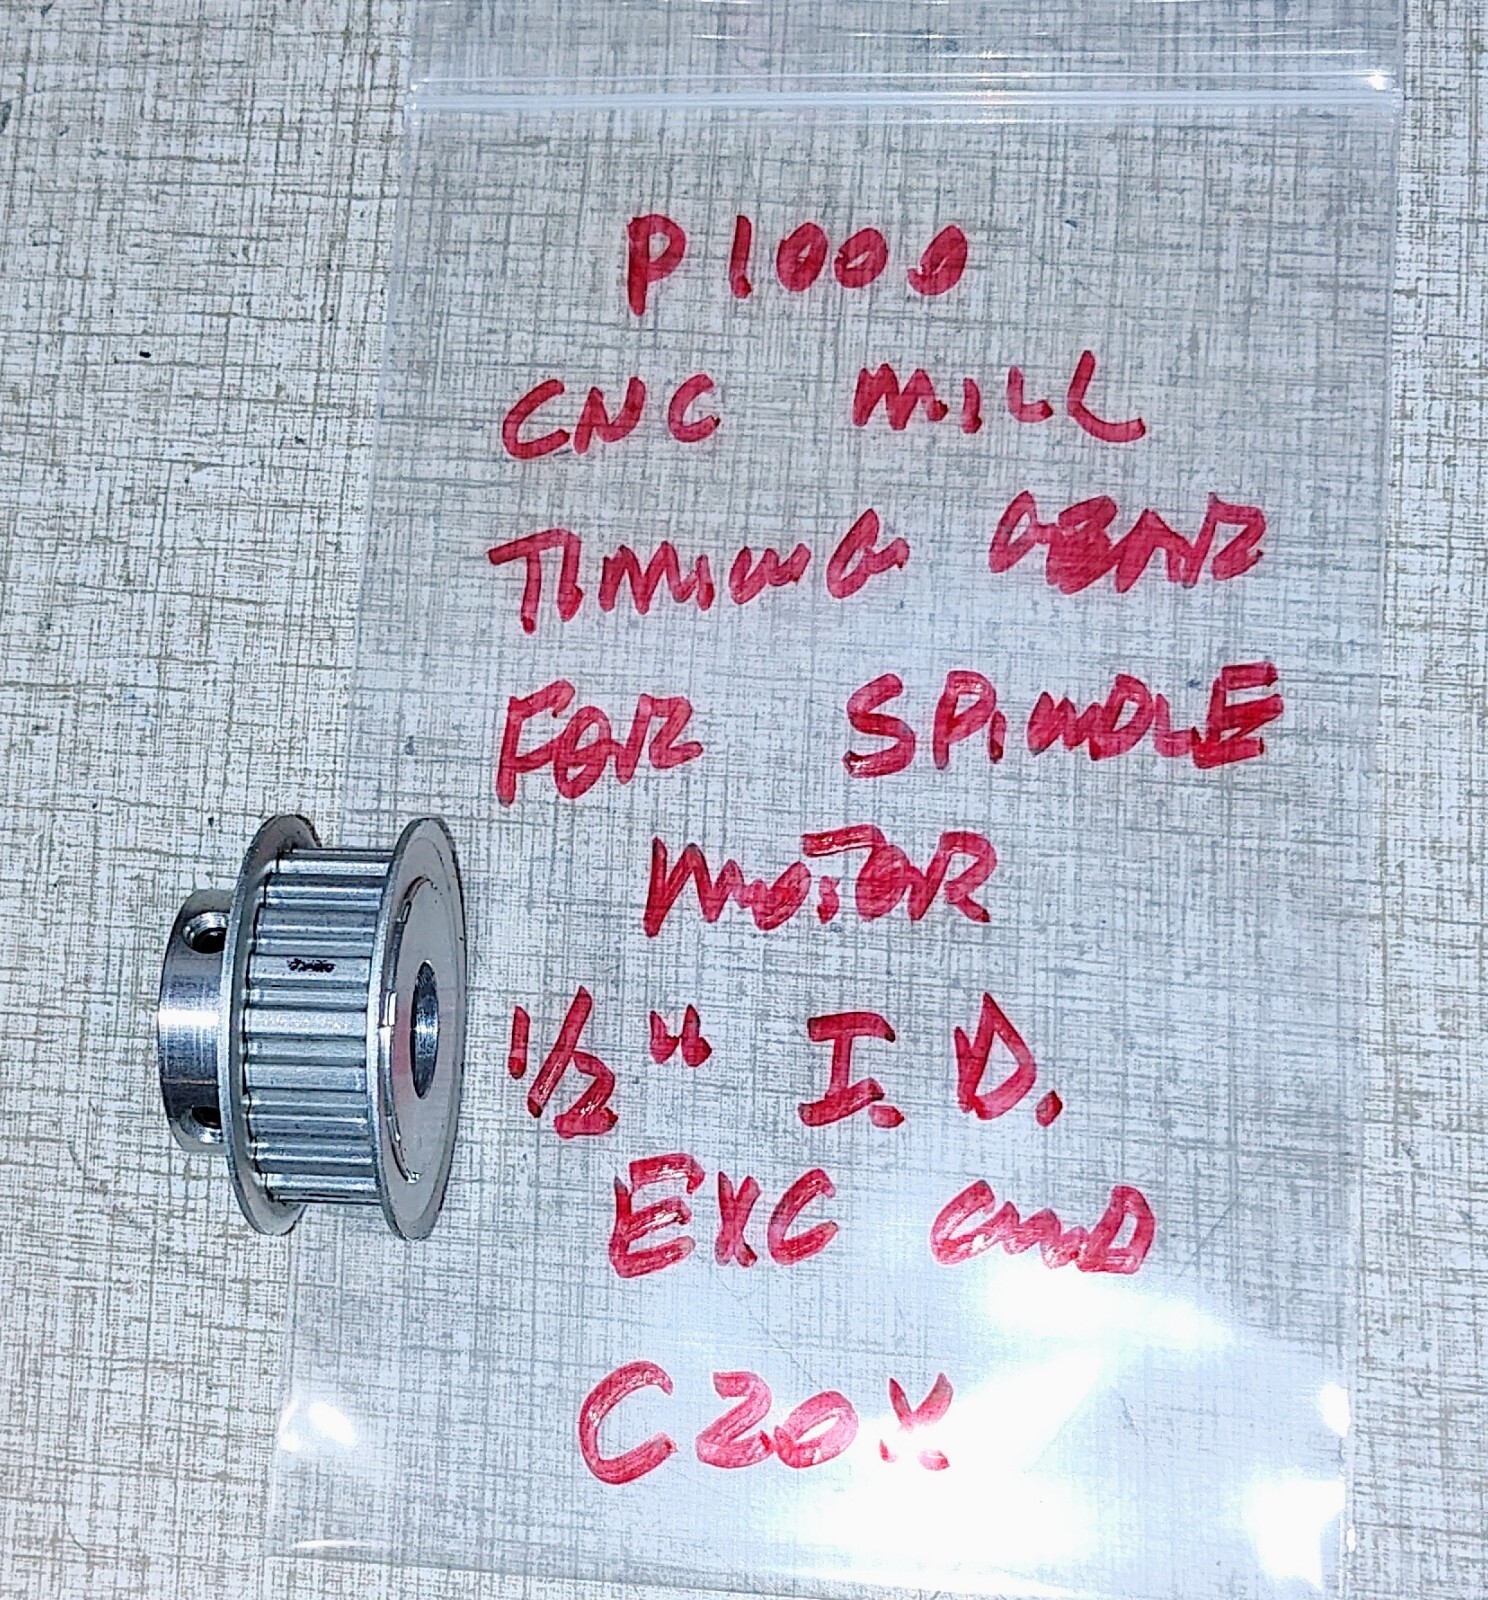 P1000
CNC MILL
TIMING GEAR
FOR SPINDLE
MOTOR
1/2" I.D.
EXC CND
C20X